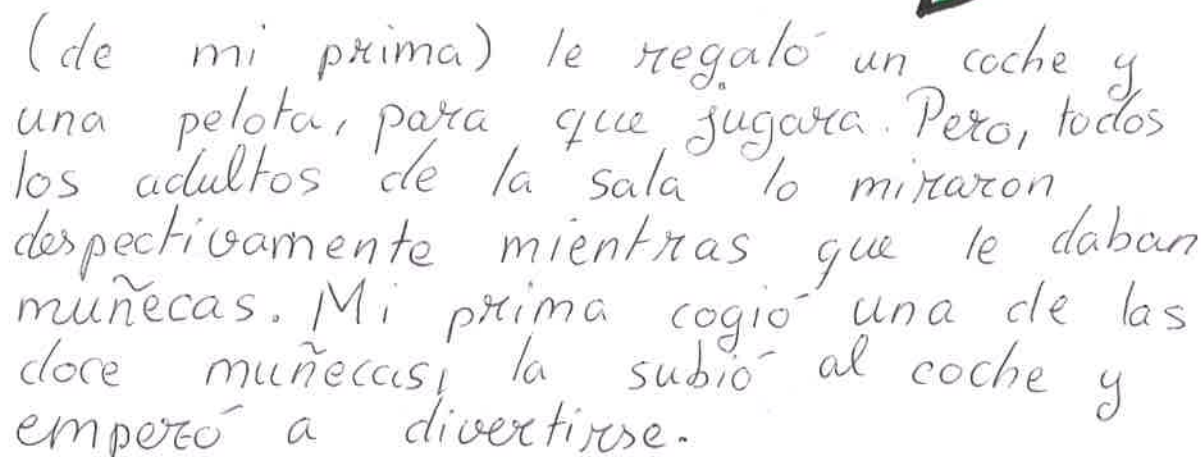 (de mi prima) le regaló un coche y
una pelota, para que jugara. Pero, todos
los adultos de la sala lo miraron
despectivamente mientras que le daban
muñecas. Mi prima cogió una de las
doce muñecas, la subió al coche y
emperó a divertirse.